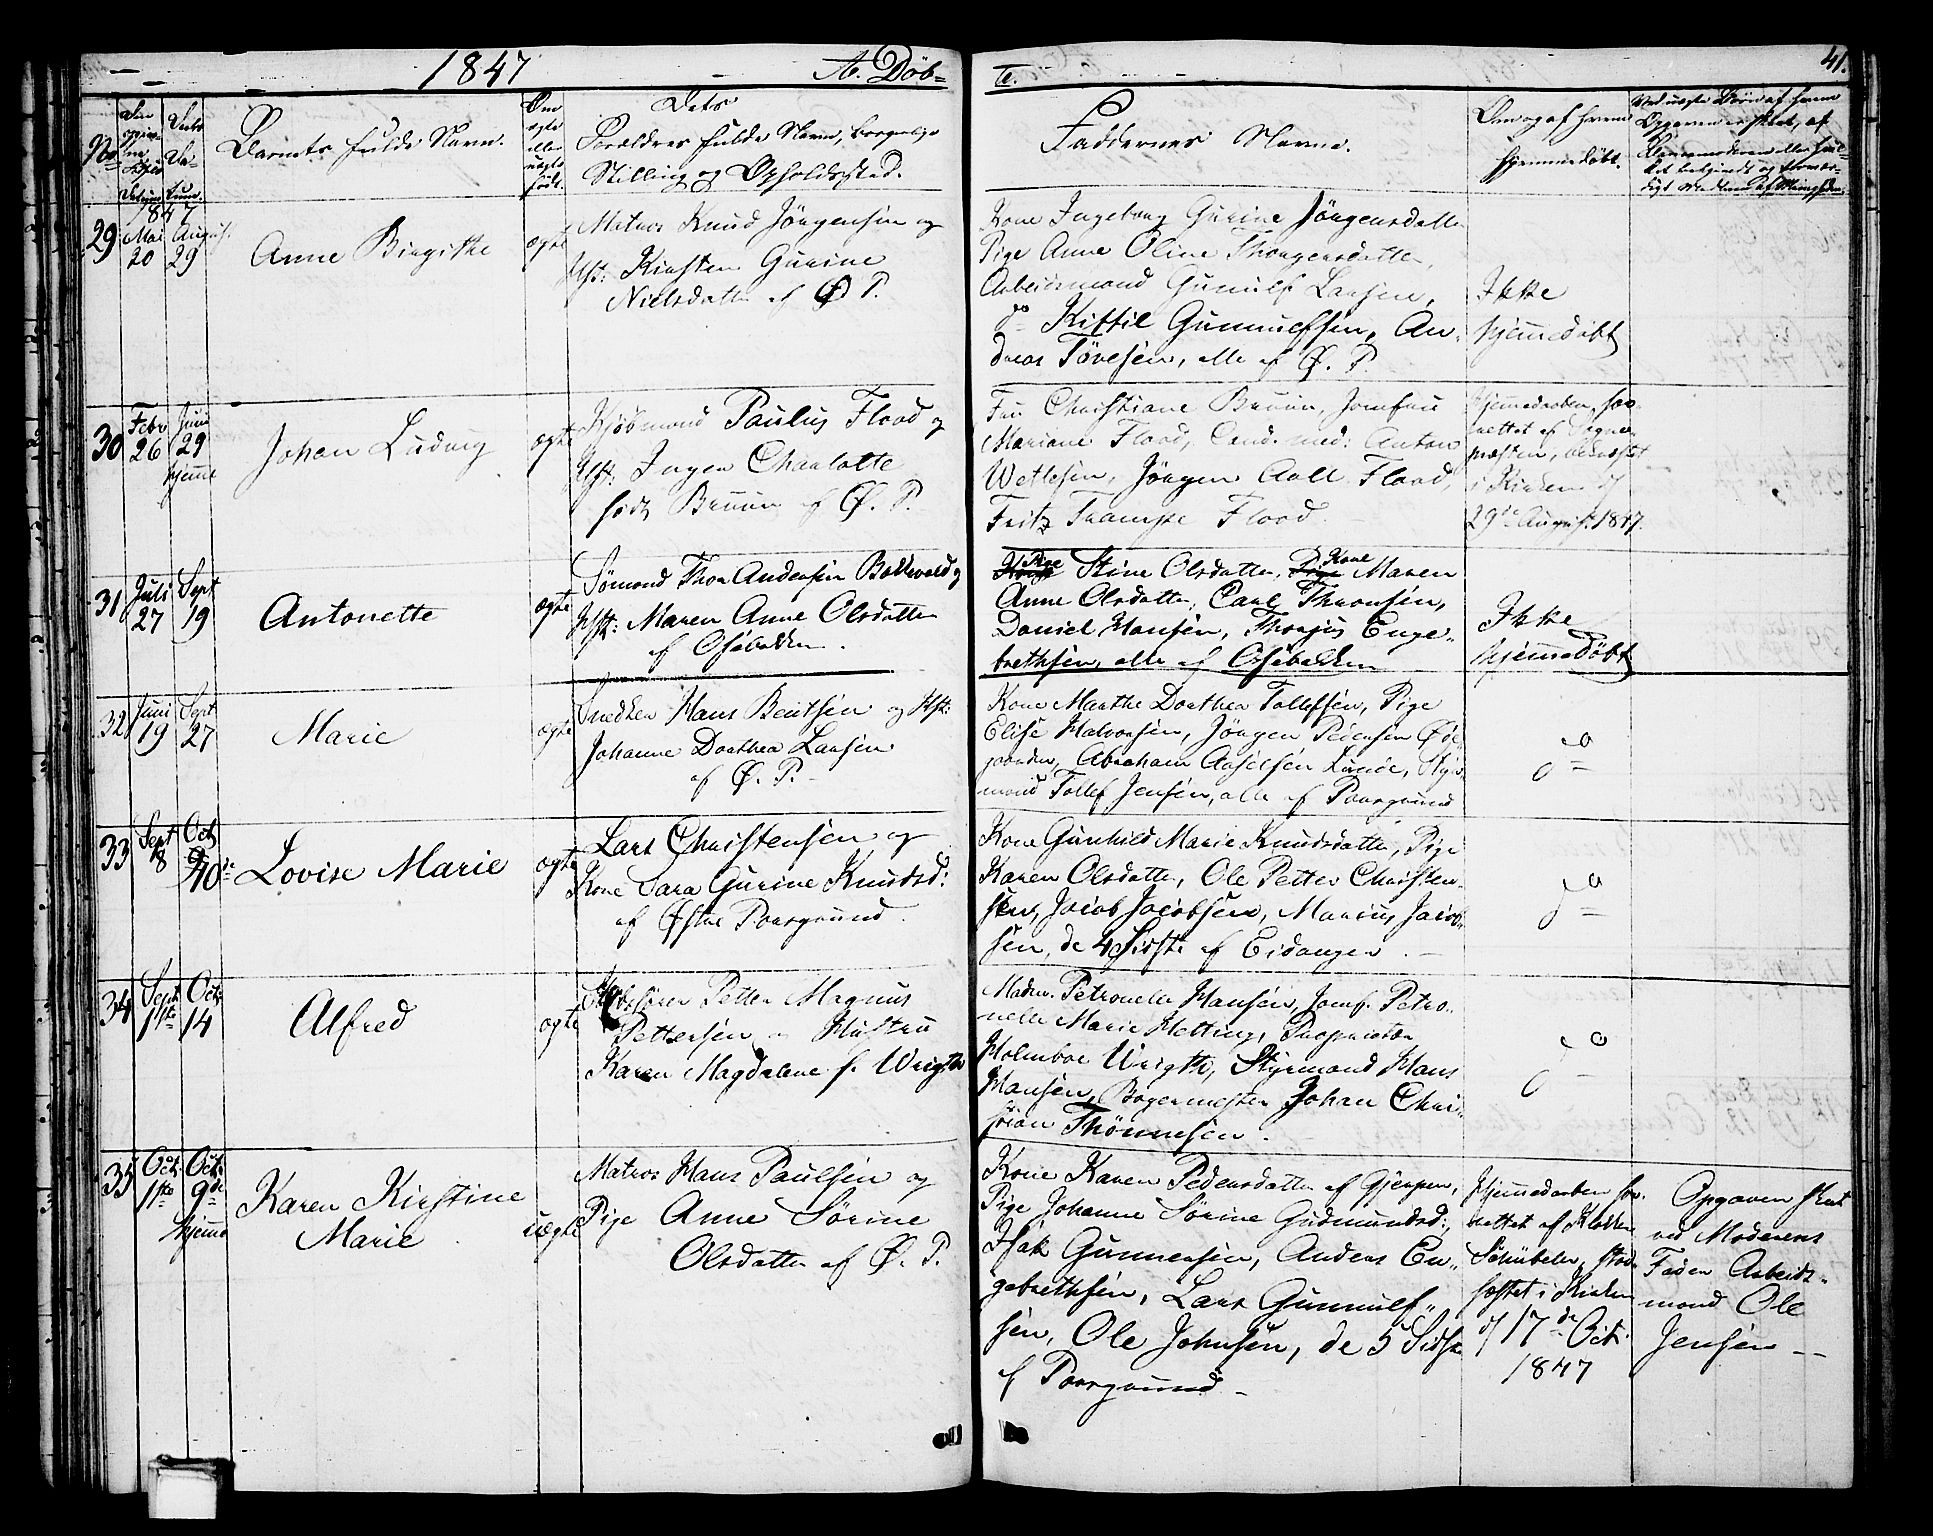 1847
A. Döb-
te.
41.
No
Barnets fulde Navn.
Dets
Forældres fulde Navn, borgerlige
Stilling og Opholdssted.
Faddernes Navne.
Om og af hvem
hjemmedøbt.
1847
29
Mai
20
August
29
Anne Birgitte
ægte
Matros Knud Jörgensen og
Hst: Kirsten Gurine
Nielsdatter af Ø. P.
Kone Ingeborg Gurine Jörgensdatter
Pige Anne Oline Thorgersdatter,
Arbeidsmand Gunulf Larsen,
do Kittil Gunnulfsen, An-
dreas Tövesen, alle af Ø. P.
Ikke
hjemmedøbt
30
Febr
26
Juni
29
hjemme
Johan Ludvig
ægte
Kjöbmand Paulus Flood og
Hst: Inger Charlotte
født Bruun af Ø. P.
Fru Christiane Bruun, Jomfru
Mariane Flood, Cand. med: Anton
Wetlesen, Jörgen Aall Flood,
Fritz Trampe Flood.
Hjemmedaaben for-
rettet af Sogne-
præsten,
i Kirken d
29de August 1847.
31
Juli
27
Sept
19
Antonette
ægte
Sömand Thor Andersen Bakkevold og
Hst: Maren Anne Olsdatter
af Osebakken.
Pige Stine Olsdatter, Kone Maren
Anne Olsdatter, Carl Thronsen,
Daniel Hansen, Thorjus Enge-
brethsen, alle af Osebakken
Ikke
hjemmedøbt
32
Juni
19
Sept
27
Marie
ægte
Snedker Hans Bentsen og Hst:
Johanne Dorthea Larsen
af Ø. P. -
Kone Marthe Dorthea Tollefsen, Pige
Elise Halvorsen, Jörgen Pedersen Øde-
gaarden, Abraham Aslesen Lunde, Styr-
mand Tollef Jensen, alle af Porsgrund
do
33
Sept
8
Oct
10de
Lovise Marie
ægte
Lars Christensen og
Kone Sara Gurine Knudsd:
af Østre Porsgrund.
Kone Gunhild Marie Knudsdatter, Pige
Karen Olsdatter, Ole Petter Christen-
sen, Jacob Jacobsen, Marius Jacob-
sen, de 4 Sidste af Eidanger. -
do
34
Sept
11te
Oct
14
Alfred
ægte
Petter Magnus
Pettersen og Hustru
Karen Magdalene f. Wrigth
Madm. Petronelle Hansen, Jomf. Petro-
nelle Marie Hetting, Proprietær
Holmboe Wrigth, Styrmand Hans
Hansen, Bagermester Johan Chri-
stian Thönnesen.
do
35
Oct.
1ste
Oct.
9de
hjemme
Karen Kirstine
Marie
uægte
Matros Hans Paulsen og
Pige Anne Sörine
Olsdatter af Ø. P.
Kone Karen Pedersdatter af Gjerpen,
Pige Johanne Sörine Gudmundsd:,
Isak Gunnersen, Anders En-
gebrethsen, Lars Gunnulf-
sen, Ole Johnsen, de 5 Sidste
af Porsgrund -
Hjemmedaaben for-
rettet af Klokker
Schübeler, stad-
fæstet i Kirken
d 17de Oct.
1847
Opgaven skeet
ved Moderens
Fader Arbeids-
mand Ole
Jensen -